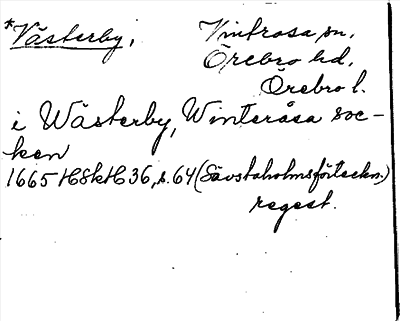 *Västerby, Vintrosa sn,
Örebro hd,
Örebro l.
i Wästerby, Winteråsa soc-
ken
1665 HSkH 36, s. 64 (Sävstaholmsförteckn.)
regest.